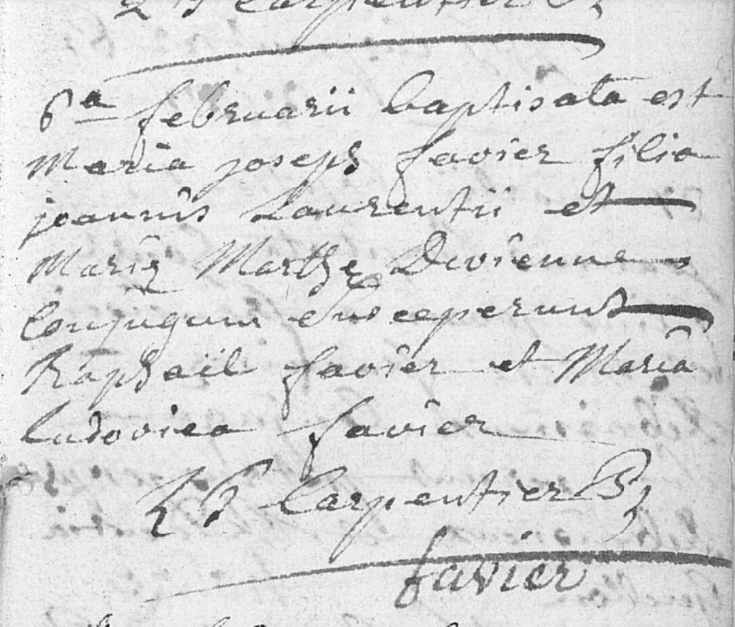 6ª februarii baptisata est
Maria joseph favier filia
joannis Laurentii et
Mariæ Marthæ Devienne
Conjugum Susceperunt
Raphaël favier et Maria
Ludovica favier
Carpentier
favier